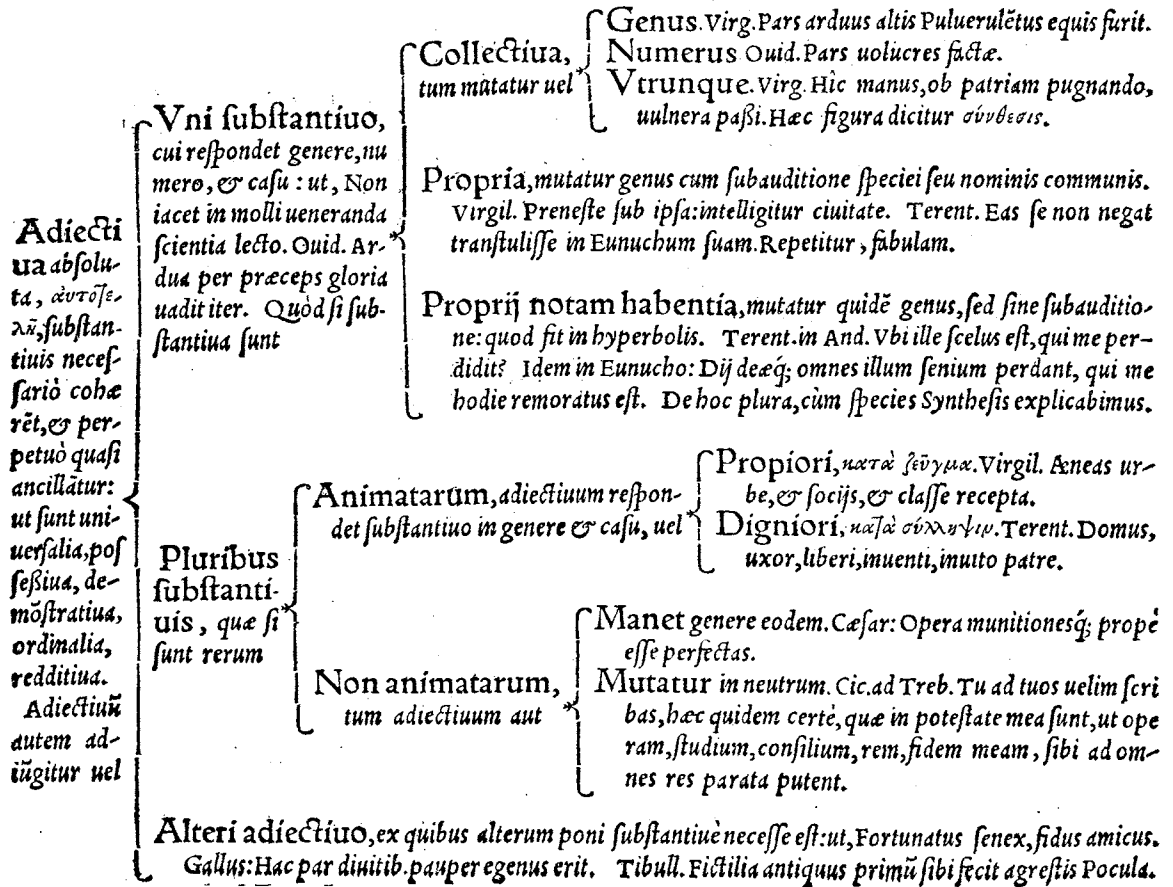 Adiecti
ua absolu-
ta, αὐτοτε-
λῆ, substan-
tiuis neces-
sariò cohæ
rẽt, & per-
petuò quasi
ancillãtur:
ut sunt uni-
uersalia, pos
seßiua, de-
mõstratiua,
ordinalia,
redditiua.
Adiectiuũ
autem ad-
iũgitur uel
Vni substantiuo,
cui respondet genere, nu
mero, & casu : ut, Non
iacet in molli ueneranda
scientia lecto. Ouid. Ar-
dua per præceps gloria
uadit iter. Quòd si sub-
stantiua sunt
Collectiua,
tum mutatur uel
Genus. Virg. Pars arduus altis Puluerulẽtus equis furit.
Numerus Ouid. Pars uolucres factæ.
Vtrunque. Virg. Hîc manus, ob patriam pugnando,
uulnera paßi. Hæc figura dicitur σύνθεσις.
Propria, mutatur genus cum subauditione speciei seu nominis communis.
Virgil. Preneste sub ipsa: intelligitur ciuitate. Terent. Eas se non negat
transtulisse in Eunuchum suam. Repetitur, fabulam.
Proprij notam habentia, mutatur quidẽ genus, sed sine subauditio-
ne: quod fit in hyperbolis. Terent. in And. Vbi ille scelus est, qui me per-
didit? Idem in Eunucho: Dij deæq́; omnes illum senium perdant, qui me
hodie remoratus est. De hoc plura, cùm species Synthesis explicabimus.
Pluribus
substanti-
uis, quæ si
sunt rerum
Animatarum, adiectiuum respon-
det substantiuo in genere & casu, uel
Propiori, κατὰ ζεῦγμα. Virgil. Æneas ur-
be, & socijs, & classe recepta.
Digniori, κατὰ σύλληψιν. Terent. Domus,
uxor, liberi, inuenti, inuito patre.
Non animatarum,
tum adiectiuum aut
Manet genere eodem. Cæsar: Opera munitionesq́; propè
esse perfectas.
Mutatur in neutrum. Cic. ad Treb. Tu ad tuos uelim scri
bas, hæc quidem certè, quæ in potestate mea sunt, ut ope
ram, studium, consilium, rem, fidem meam, sibi ad om-
nes res parata putent.
Alteri adiectiuo, ex quibus alterum poni substantiuè necesse est: ut, Fortunatus senex, fidus amicus.
Gallus: Hac par diuitib. pauper egenus erit. Tibull. Fictilia antiquus primũ sibi fecit agrestis Pocula.